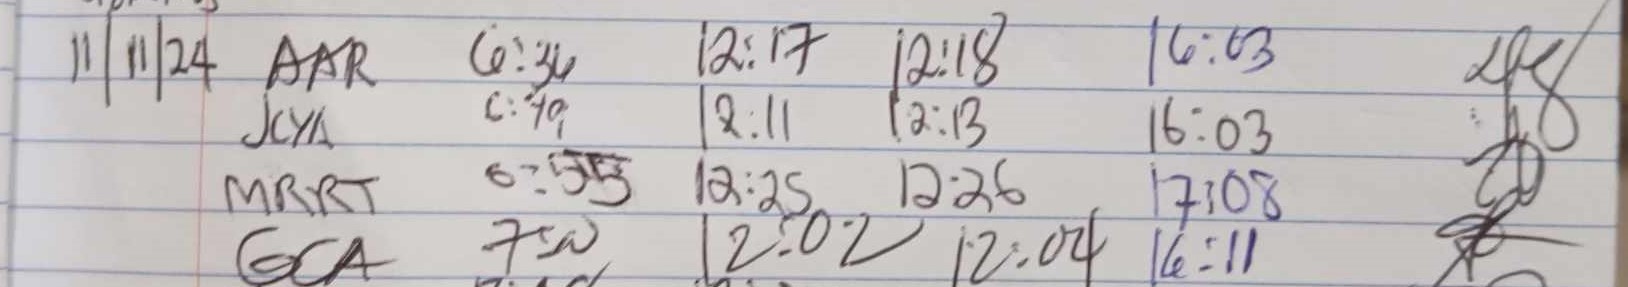 11/11/24 AAR 6:34 12:17 12:18 16:03
JCYA 6:49 12:11 12:13 16:03
MRRT 6:55 12:25 12:26 17:08
GCA 12:02 12:04 16:11